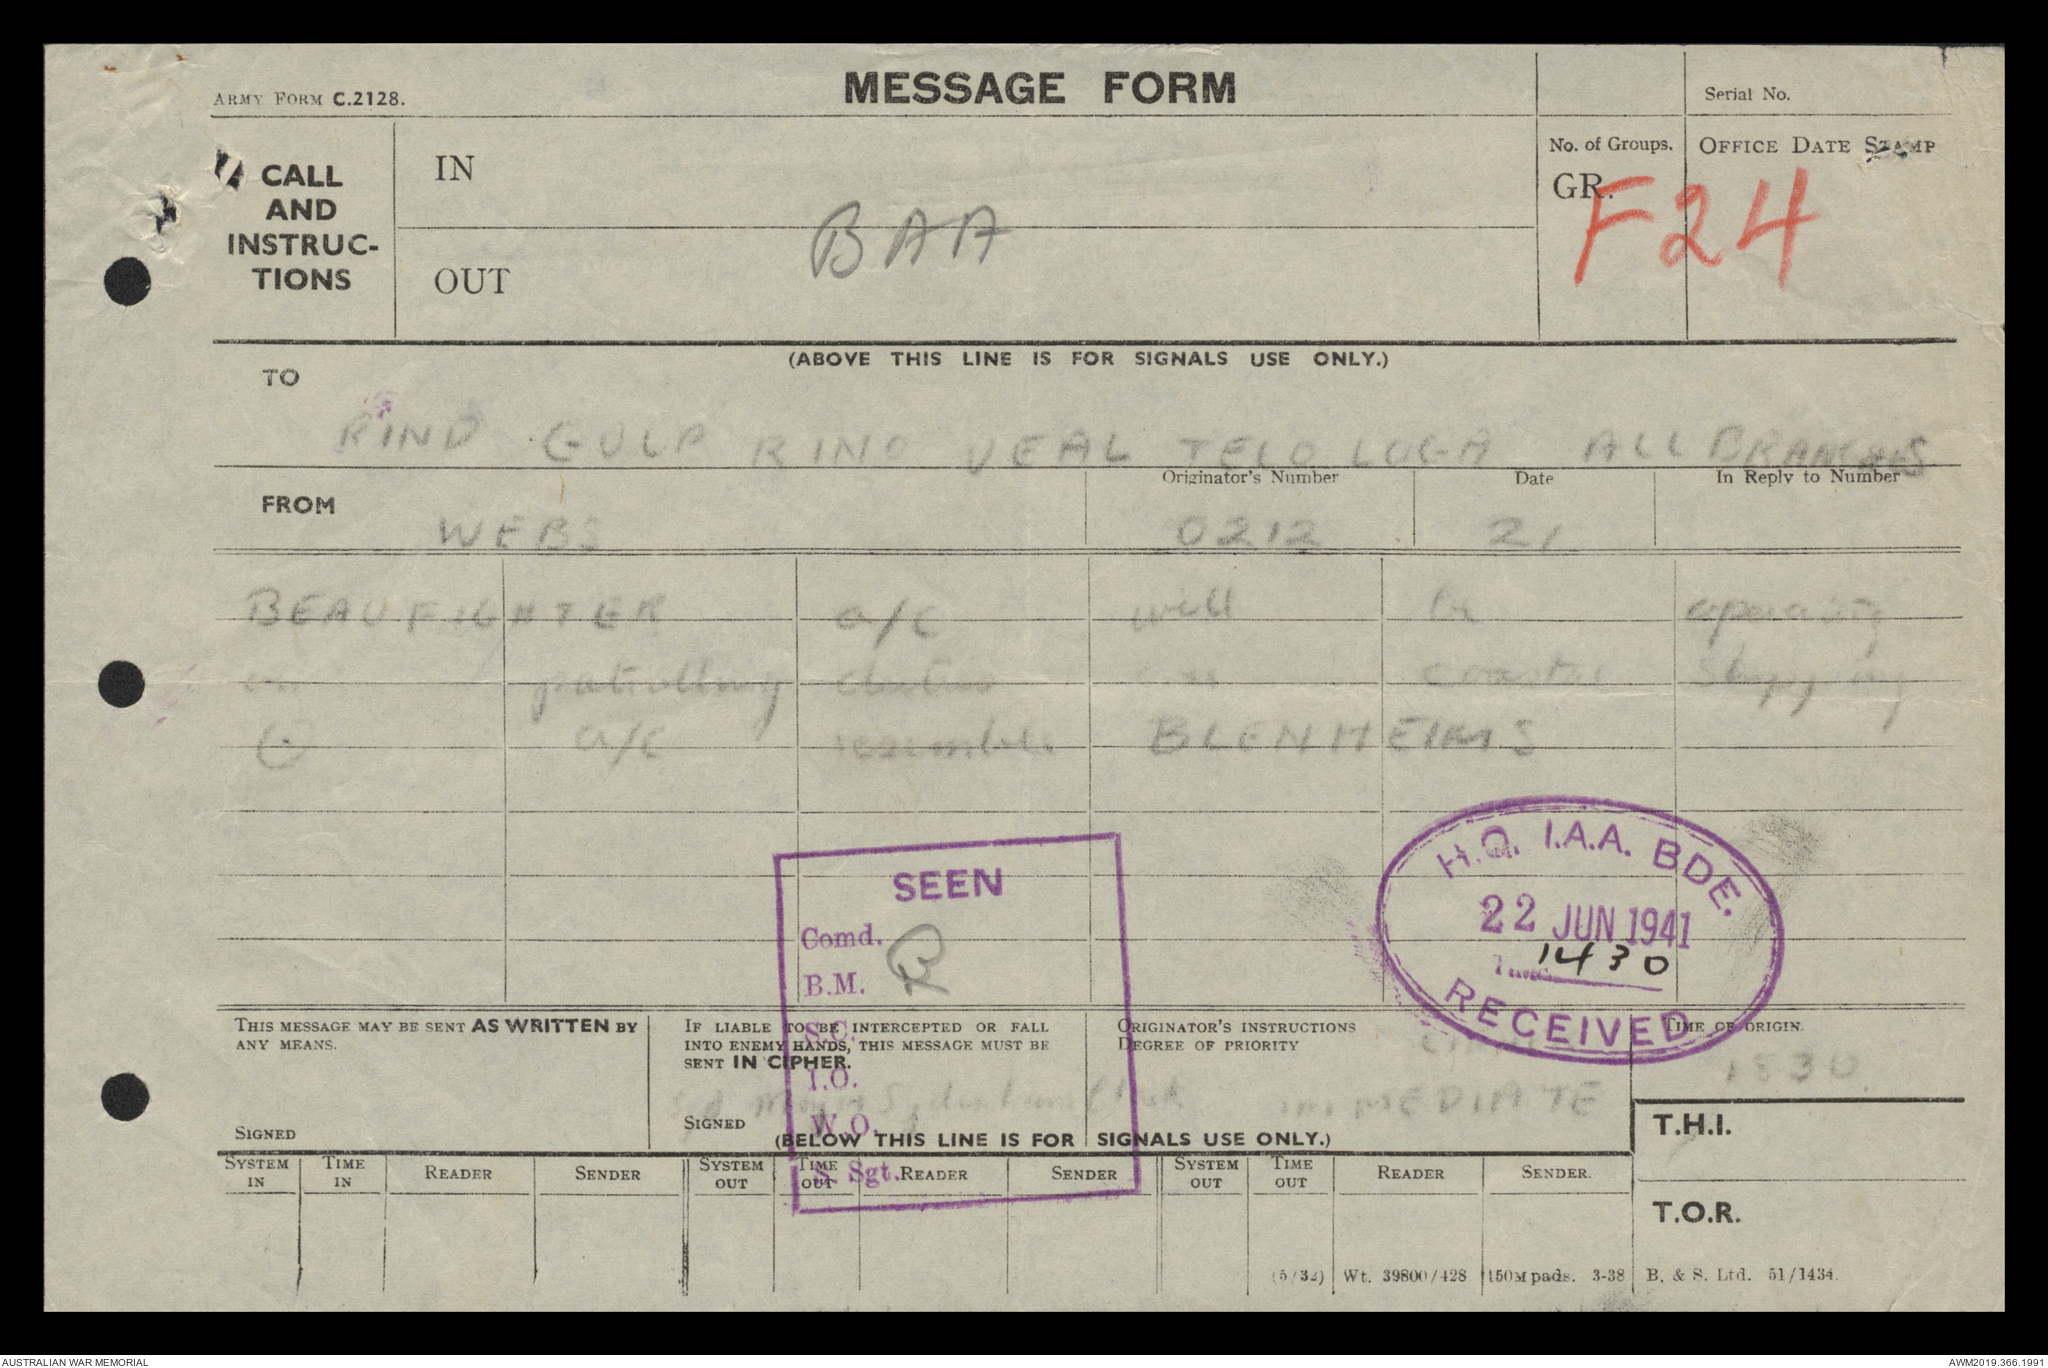 ARMY FORM C.2128.
MESSAGE FORM
Serial No.
CALL AND INSTRUC-TIONS
IN
OUT
BAA
No. of Groups.
GR.
OFFICE DATE STAMP
F24
(ABOVE THIS LINE IS FOR SIGNALS USE ONLY.)
TO
RIND GULP RINO VEAL TELO LUGA ALL BRANCHES
FROM
WEBS
Originator's Number
0212
Date
21
In Reply to Number
BEAUFIGHTER a/c will be operating
on patrolling duties over coastal shipping
(.) a/c resemble BLENHEIMS
SEEN
Comd.
B.M.
S.C.
I.O.
W.O.
S. Sgt.
H.Q. I.A.A. BDE.
22 JUN 1941
Time 1430
RECEIVED
THIS MESSAGE MAY BE SENT AS WRITTEN BY
ANY MEANS.
SIGNED
IF LIABLE TO BE INTERCEPTED OR FALL
INTO ENEMY HANDS, THIS MESSAGE MUST BE
SENT IN CIPHER.
SIGNED
ORIGINATOR'S INSTRUCTIONS
DEGREE OF PRIORITY
IMMEDIATE
TIME OF ORIGIN.
1830
T.H.I.
T.O.R.
(BELOW THIS LINE IS FOR SIGNALS USE ONLY.)
SYSTEM IN TIME IN READER SENDER SYSTEM OUT TIME OUT READER SENDER SYSTEM OUT TIME OUT READER SENDER.
(5/32) Wt. 39800/428 150M pads. 3-38 B. & S. Ltd. 51/1434.
AUSTRALIAN WAR MEMORIAL
AWM2019.366.1991